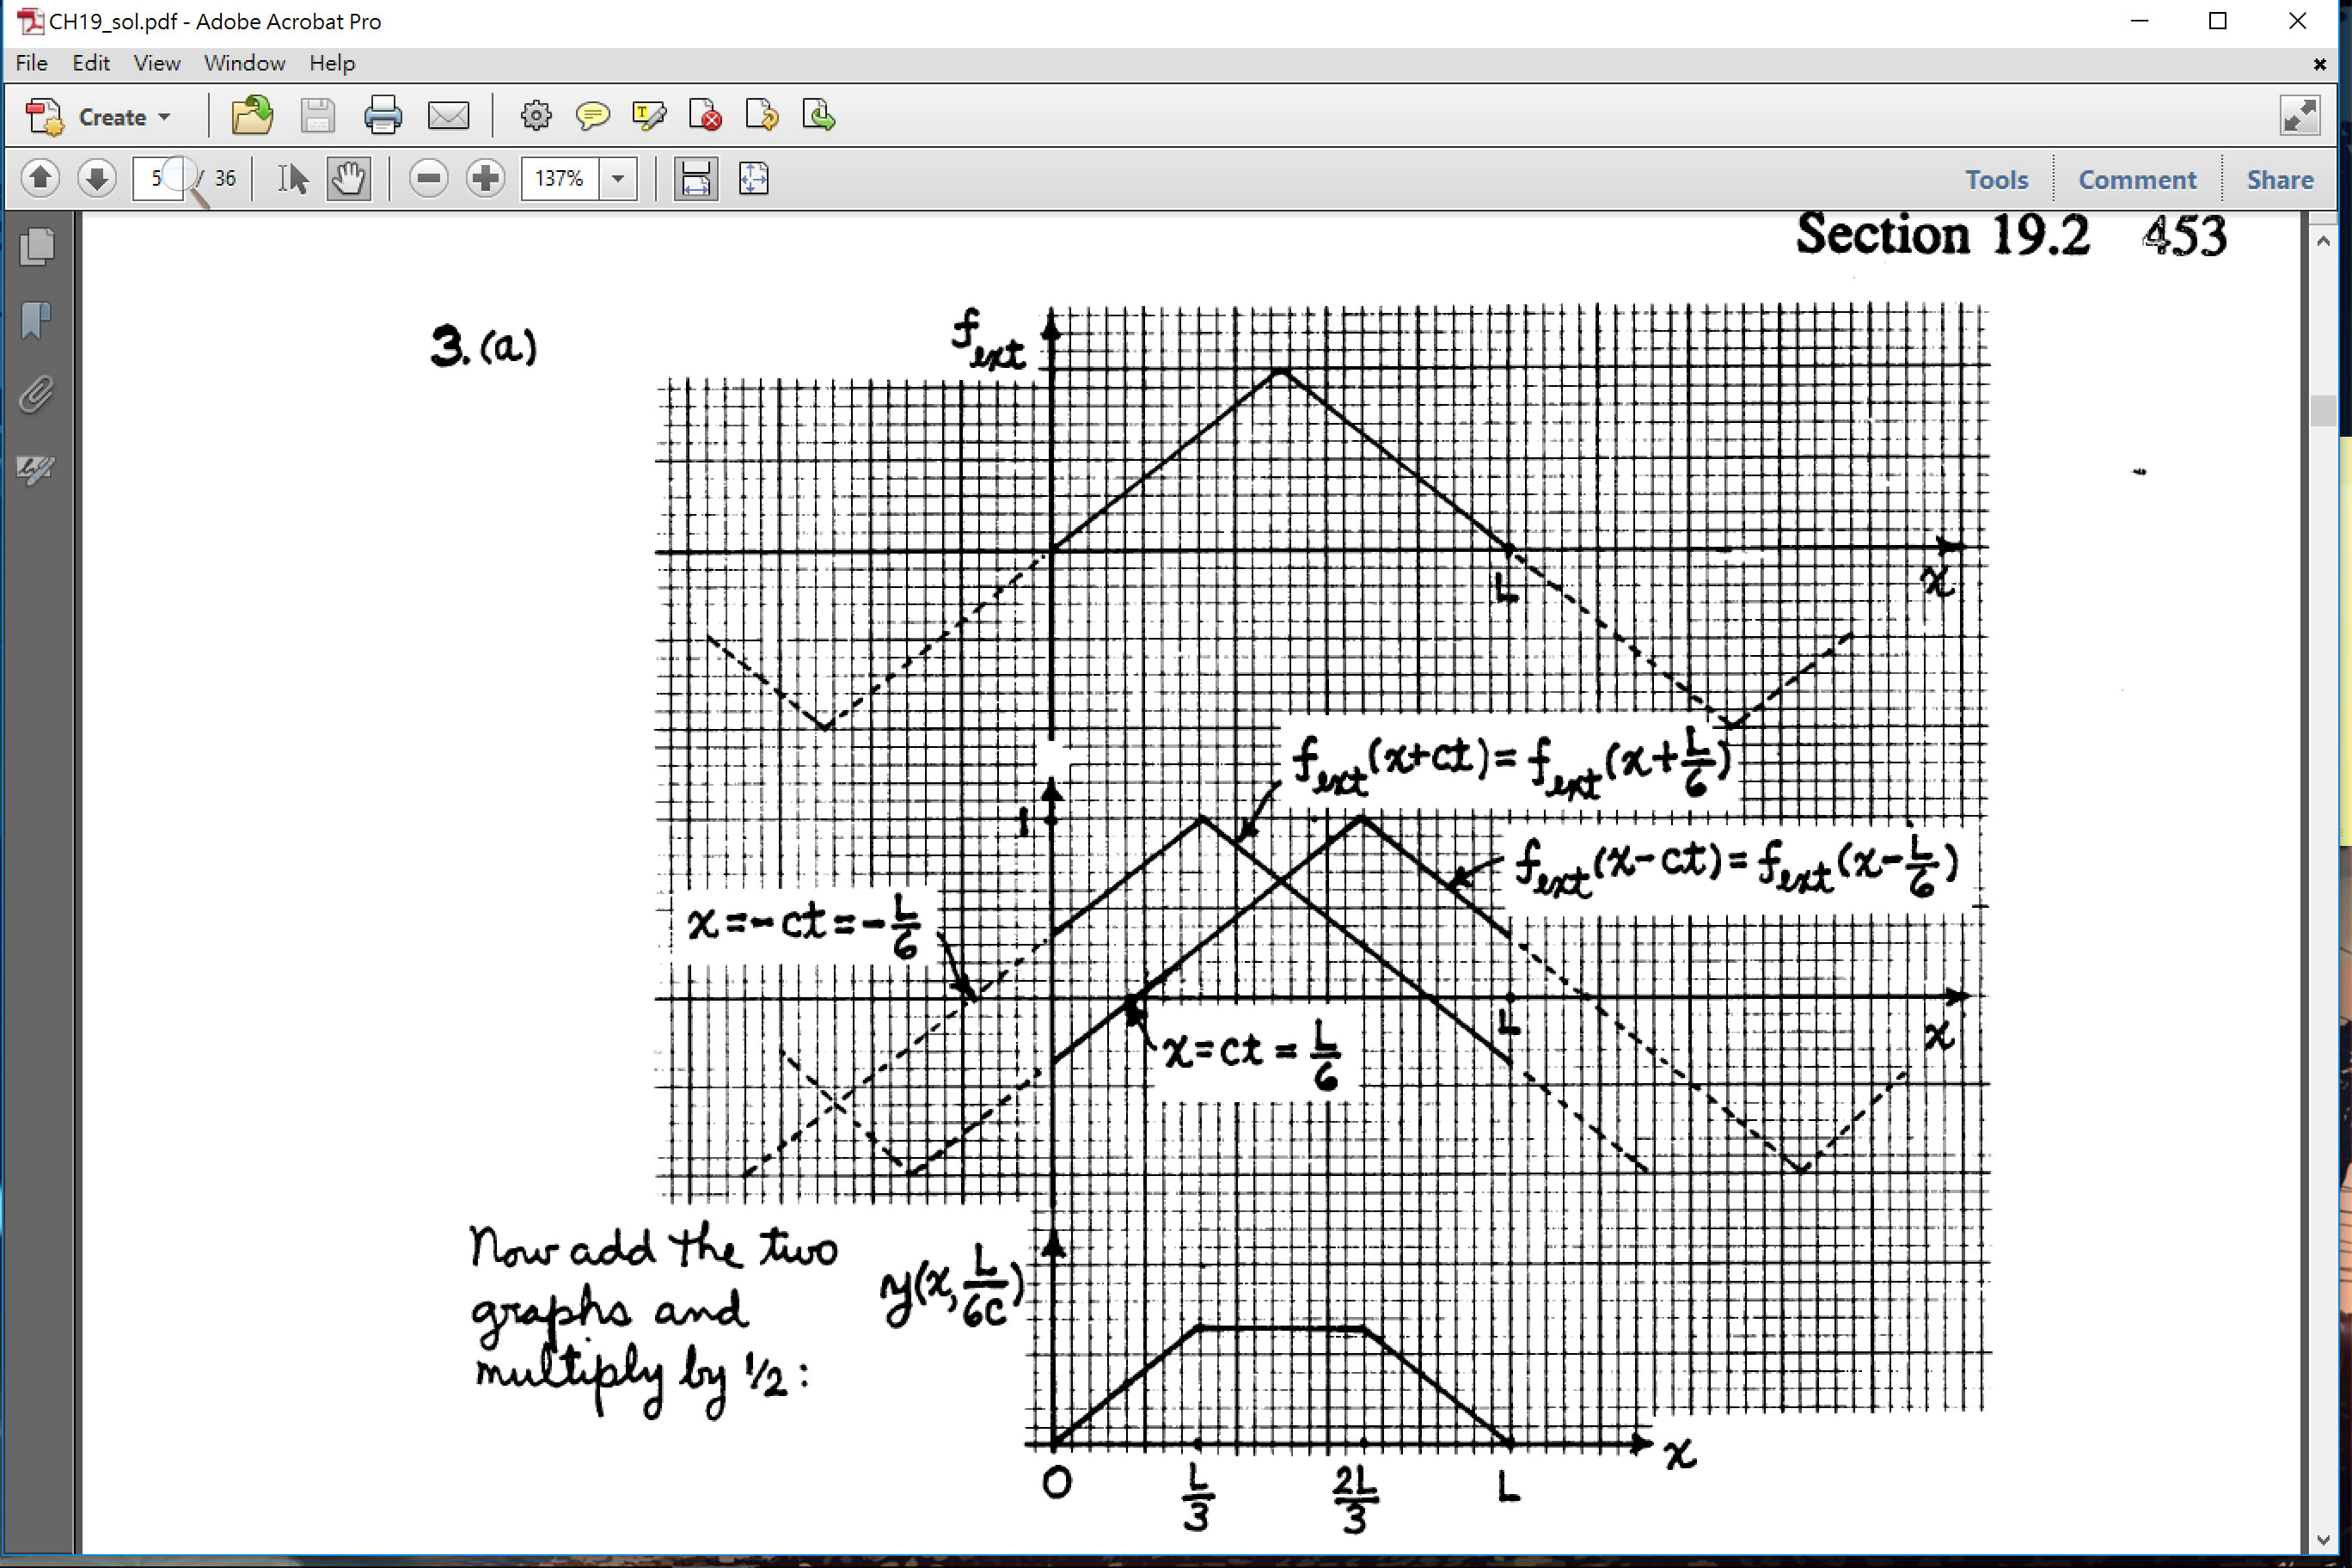 CH19_sol.pdf - Adobe Acrobat Pro
File Edit View Window Help
Create
5 / 36 137% Tools Comment Share
Section 19.2 453
3. (a)
f_ext
x
L
f_ext(x+ct) = f_ext(x+L/6)
1
f_ext(x-ct) = f_ext(x-L/6)
x=-ct=-L/6
L
x
x=ct=L/6
Now add the two
graphs and
multiply by 1/2:
y(x, L/6c)
x
0 L/3 2L/3 L